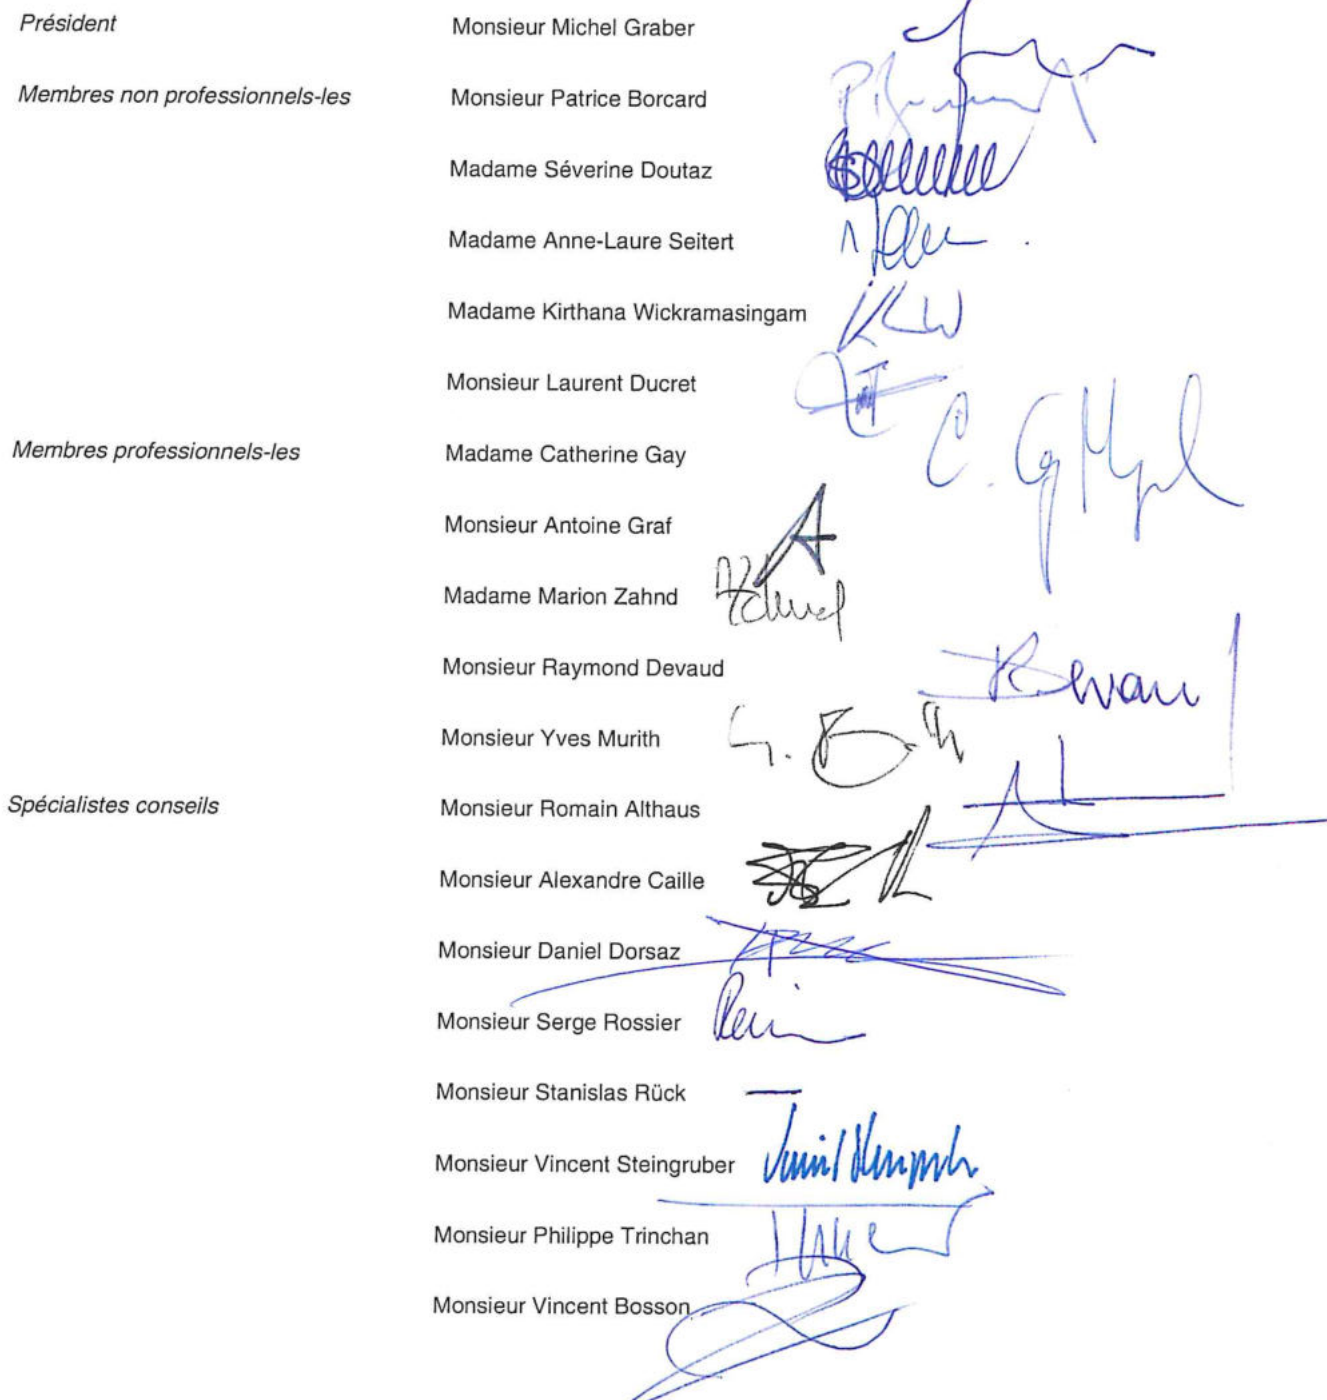 Président Monsieur Michel Graber
Membres non professionnels-les Monsieur Patrice Borcard
Madame Séverine Doutaz
Madame Anne-Laure Seitert
Madame Kirthana Wickramasingam
KW
Monsieur Laurent Ducret
Membres professionnels-les Madame Catherine Gay
Monsieur Antoine Graf
Madame Marion Zahnd
Monsieur Raymond Devaud
Monsieur Yves Murith
Spécialistes conseils Monsieur Romain Althaus
Monsieur Alexandre Caille
Monsieur Daniel Dorsaz
Monsieur Serge Rossier
Monsieur Stanislas Rück –
Monsieur Vincent Steingruber
Monsieur Philippe Trinchan
Monsieur Vincent Bosson